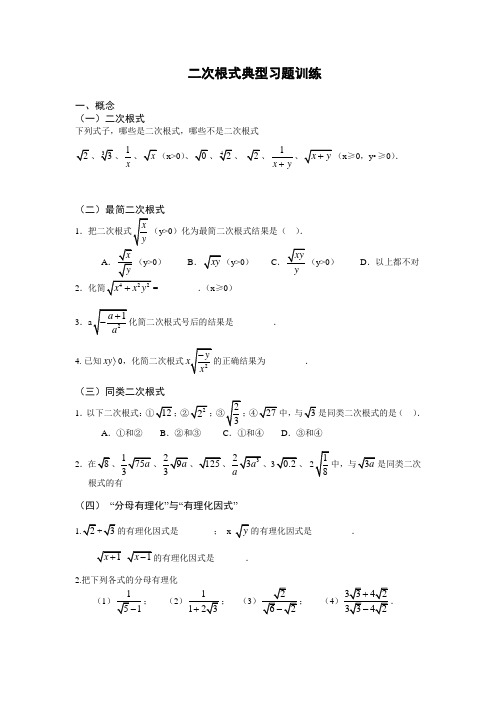 二次根式典型习题训练
一、概念
（一）二次根式
下列式子，哪些是二次根式，哪些不是二次根式
√2、∛3、1/x、√x（x>0）、√0、∜2、√2、1/(x+y)、√(x+y)（x≥0，y•≥0）．
（二）最简二次根式
1．把二次根式√(x/y)（y>0）化为最简二次根式结果是（ ）．
A．√x/√y（y>0） B．√xy（y>0） C．√xy/y（y>0） D．以上都不对
2．化简√(x⁴+x²y²)=_________．（x≥0）
3．a√(-(a+1)/a²)化简二次根式号后的结果是_________．
4. 已知xy〉0，化简二次根式x√(-y/x²)的正确结果为_________．
（三）同类二次根式
1．以下二次根式：①√12；②√2²；③√(2/3)；④√27中，与√3是同类二次根式的是（ ）．
A．①和② B．②和③ C．①和④ D．③和④
2．在√8、1/3√75a、2/3√9a、√125、2/a√3a³、3√0.2、2√(1/8)中，与√3a是同类二次
根式的有
（四） “分母有理化”与“有理化因式”
1.√2+√3的有理化因式是________； x-√y的有理化因式是_________．
-√(x+1)-√(x-1)的有理化因式是_______．
2.把下列各式的分母有理化
（1）1/(√5-1)； （2）1/(1+2√3)； （3）√2/(√6-√2)； （4）(3√3+4√2)/(3√3-4√2)．